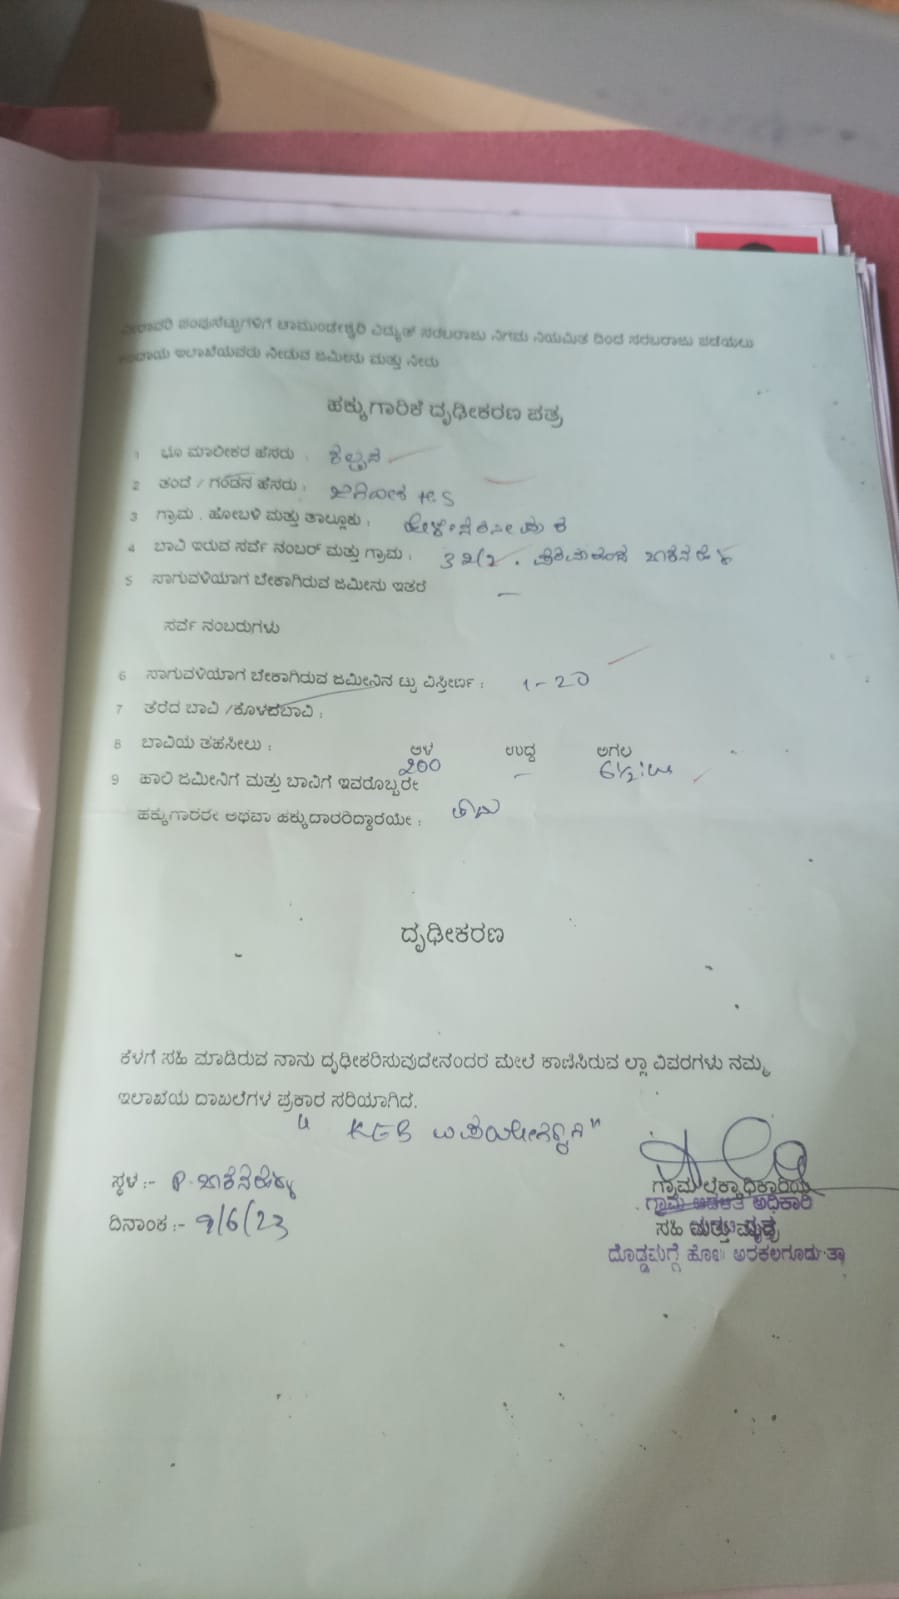 ನೀರಾವರಿ ಪಂಪುಸೆಟ್ಟುಗಳಿಗೆ ಚಾಮುಂಡೇಶ್ವರಿ ವಿದ್ಯುತ್ ಸರಬರಾಜು ನಿಗಮ ನಿಯಮಿತ ದಿಂದ ಸರಬರಾಜು ಪಡೆಯಲು
ಕಂದಾಯ ಇಲಾಖೆಯವರು ನೀಡುವ ಜಮೀನು ಮತ್ತು ನೀರು
ಹಕ್ಕುಗಾರಿಕೆ ದೃಢೀಕರಣ ಪತ್ರ
1 ಭೂ ಮಾಲೀಕರ ಹೆಸರು :
2 ತಂದೆ / ಗಂಡನ ಹೆಸರು : H.S
3 ಗ್ರಾಮ . ಹೋಬಳಿ ಮತ್ತು ತಾಲ್ಲೂಕು :
4 ಬಾವಿ ಇರುವ ಸರ್ವೆ ನಂಬರ್ ಮತ್ತು ಗ್ರಾಮ : 32/2 .
5 ಸಾಗುವಳಿಯಾಗ ಬೇಕಾಗಿರುವ ಜಮೀನು ಇತರೆ —
ಸರ್ವೆ ನಂಬರುಗಳು
6 ಸಾಗುವಳಿಯಾಗ ಬೇಕಾಗಿರುವ ಜಮೀನಿನ ಟ್ಟು ವಿಸ್ತೀರ್ಣ : 1-20
7 ತೆರೆದ ಬಾವಿ /ಕೊಳವೆಬಾವಿ :
8 ಬಾವಿಯ ತಹಸೀಲು : ಆಳ ಉದ್ದ ಅಗಲ
200 — 6½
9 ಹಾಲಿ ಜಮೀನಿಗೆ ಮತ್ತು ಬಾವಿಗೆ ಇವರೊಬ್ಬರೇ
ಹಕ್ಕುಗಾರರೇ ಅಥವಾ ಹಕ್ಕುದಾರರಿದ್ದಾರೆಯೇ :
ದೃಢೀಕರಣ
ಕೆಳಗೆ ಸಹಿ ಮಾಡಿರುವ ನಾನು ದೃಢೀಕರಿಸುವುದೇನೆಂದರೆ ಮೇಲೆ ಕಾಣಿಸಿರುವ ಲ್ಲಾ ವಿವರಗಳು ನಮ್ಮ
ಇಲಾಖೆಯ ದಾಖಲೆಗಳ ಪ್ರಕಾರ ಸರಿಯಾಗಿದೆ.
" KEB
ಸ್ಥಳ :- P.
ದಿನಾಂಕ :- 9/6/23
ಗ್ರಾಮ ಲೆಕ್ಕಾಧಿಕಾರಿಯ
ಗ್ರಾಮ ಆಡಳಿತ ಅಧಿಕಾರಿ
ಸಹಿ ಮತ್ತು ಮುದ್ರೆ
ದೊಡ್ಡಮಗ್ಗೆ ಹೋ॥ ಅರಕಲಗೂಡು ತಾ